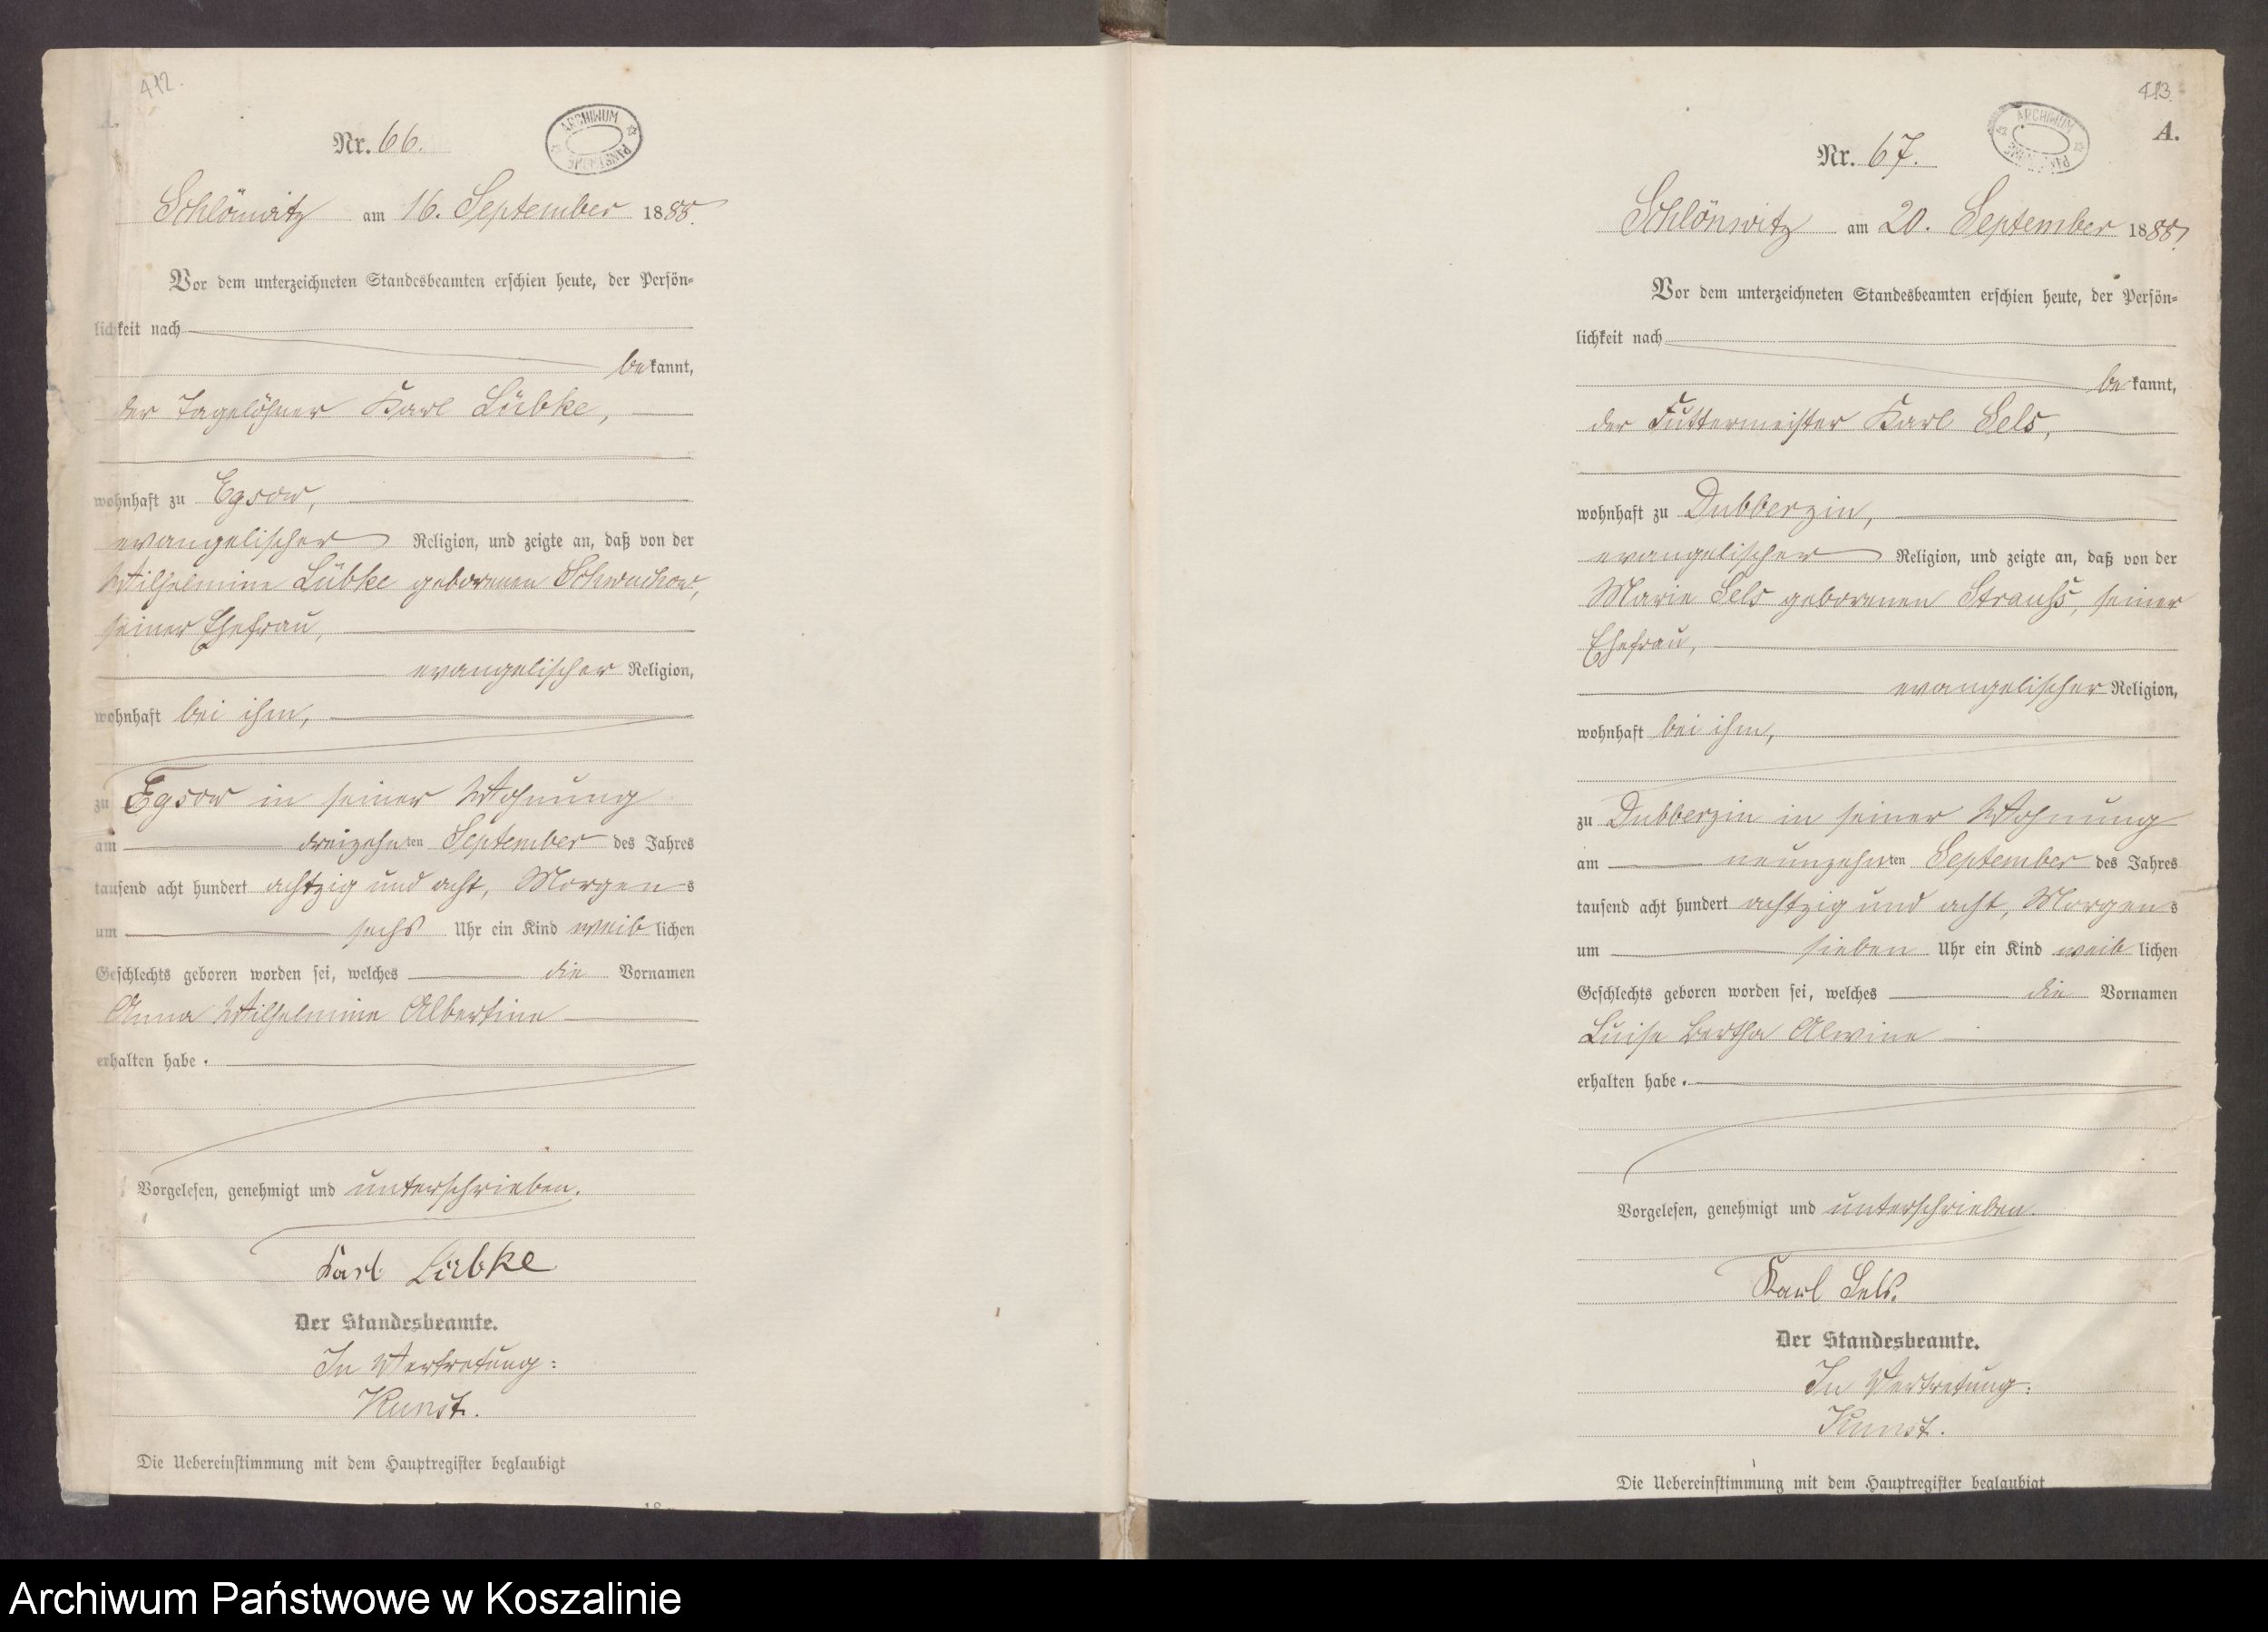 412.
Nr. 66.
ARCHIWUM PAŃSTWOWE
Schlönwitz am 16. September 1888.
Vor dem unterzeichneten Standesbeamten erschien heute, der Persön-
lichkeit nach
bekannt,
der Tagelöhner Karl Lübke,
wohnhaft zu Egsow,
evangelischer Religion, und zeigte an, daß von der
Wilhelmine Lübke geborenen
seiner Ehefrau,
evangelischer Religion,
wohnhaft bei ihm,
zu Egsow in seiner Wohnung
am dreizehnten September des Jahres
tausend acht hundert achtzig und acht, Morgens
um sechs Uhr ein Kind weiblichen
Geschlechts geboren worden sei, welches die Vornamen
Anna Wilhelmine Albertine
erhalten habe.
Vorgelesen, genehmigt und unterschrieben.
Karl Lübke
Der Standesbeamte.
In Vertretung:
Kunst.
Die Uebereinstimmung mit dem Hauptregister beglaubigt
413.
A.
Nr. 67.
ARCHIWUM PAŃSTWOWE
Schlönwitz am 20. September 1888.
Vor dem unterzeichneten Standesbeamten erschien heute, der Persön-
lichkeit nach
bekannt,
der Futtermeister Karl Sels,
wohnhaft zu Dubberzin,
evangelischer Religion, und zeigte an, daß von der
Marie Sels geborenen Strauß, seiner
Ehefrau,
evangelischer Religion,
wohnhaft bei ihm,
zu Dubberzin in seiner Wohnung
am neunzehnten September des Jahres
tausend acht hundert achtzig und acht, Morgens
um sieben Uhr ein Kind weiblichen
Geschlechts geboren worden sei, welches die Vornamen
Luise Bertha Alwine
erhalten habe.
Vorgelesen, genehmigt und unterschrieben.
Karl Sels.
Der Standesbeamte.
In Vertretung:
Kunst.
Die Uebereinstimmung mit dem Hauptregister beglaubigt
Archiwum Państwowe w Koszalinie